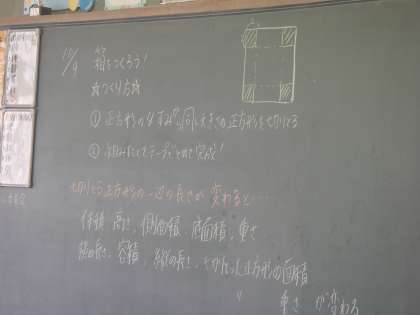 11/9 箱をつくろう！
☆つくり方☆
① 正方形の4すみから同じ大きさの正方形を切りとる
② 組み立ててテープでとめて完成！
切りとる正方形の一辺の長さが変わると…
体積、高さ、側面積、底面積、重さ
横の長さ、容積、縦の長さ、切りとった正方形の面積
〃 重さ が変わる